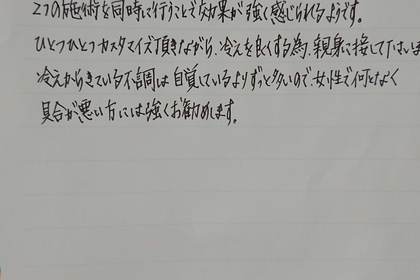 2つの施術を同時に行うことで効果が強く感じられるようです。
ひとつひとつカスタマイズ頂きながら、冷えを良くする為、親身に接して下さいま
冷えからきている不調は自覚しているよりずっと多いので、女性で何となく
具合が悪い方には強くお勧めします。